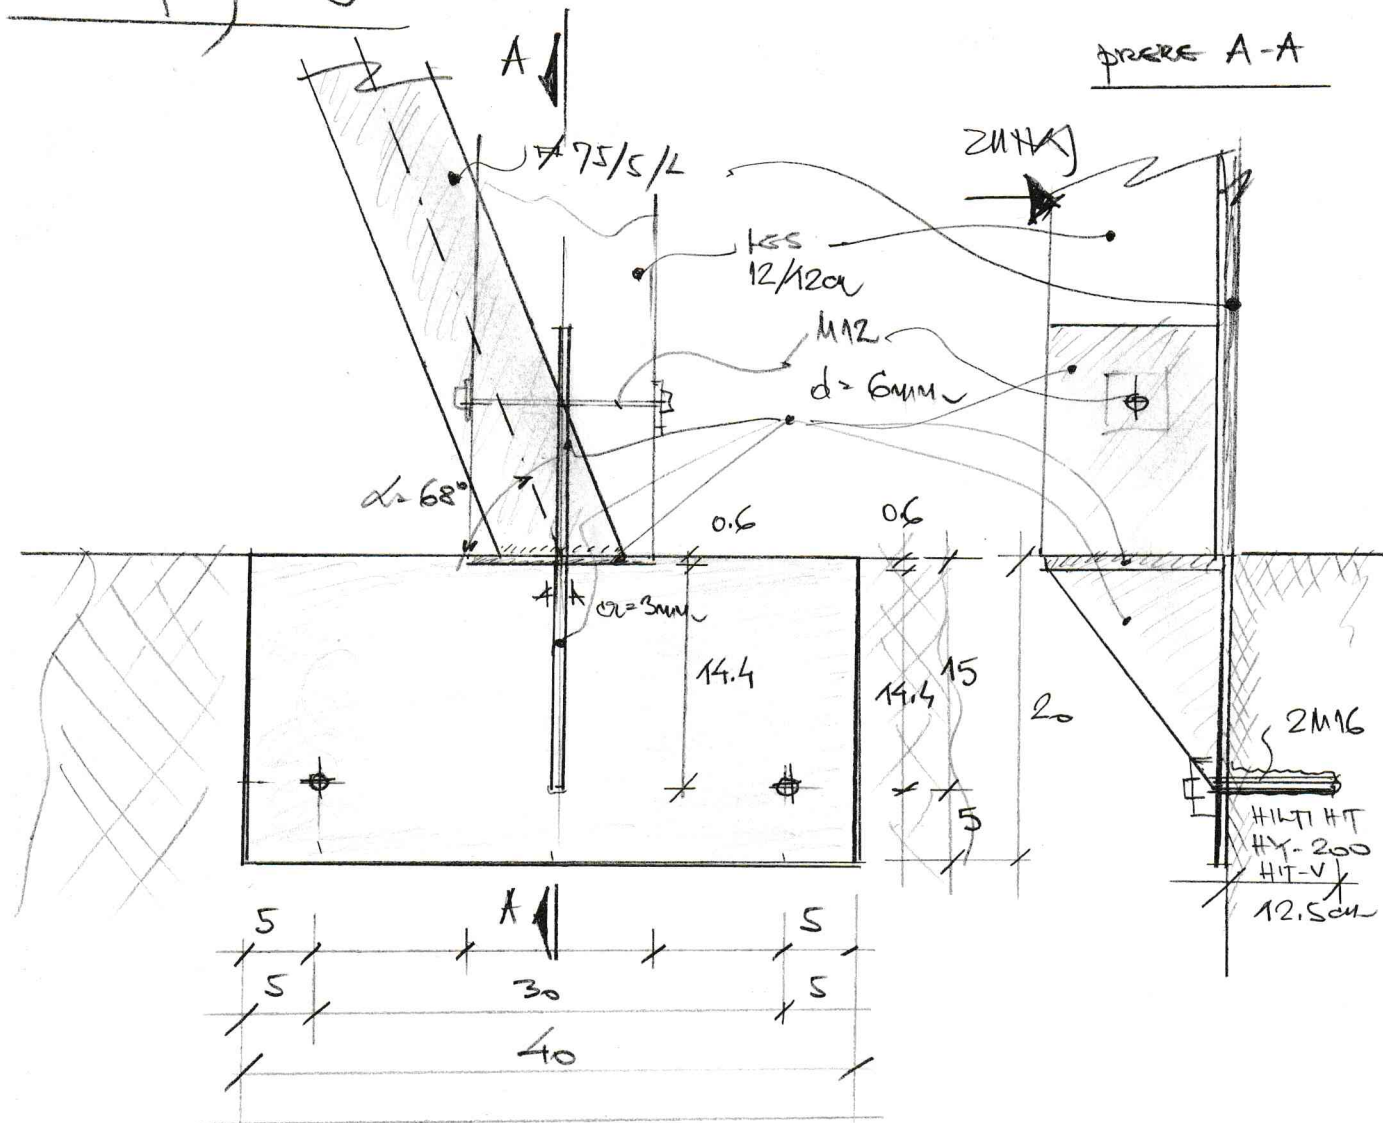 A
PRERE A-A
ZUNAJ
75/5/L
KGS
12/12cm
M12
d= 6mm
α= 68°
0.6
0.6
a=3mm
14.4
14.4
15
20
5
2M16
HILTI HIT
HY-200
HIT-V
12.5cm
A
5
5
5
30
5
40